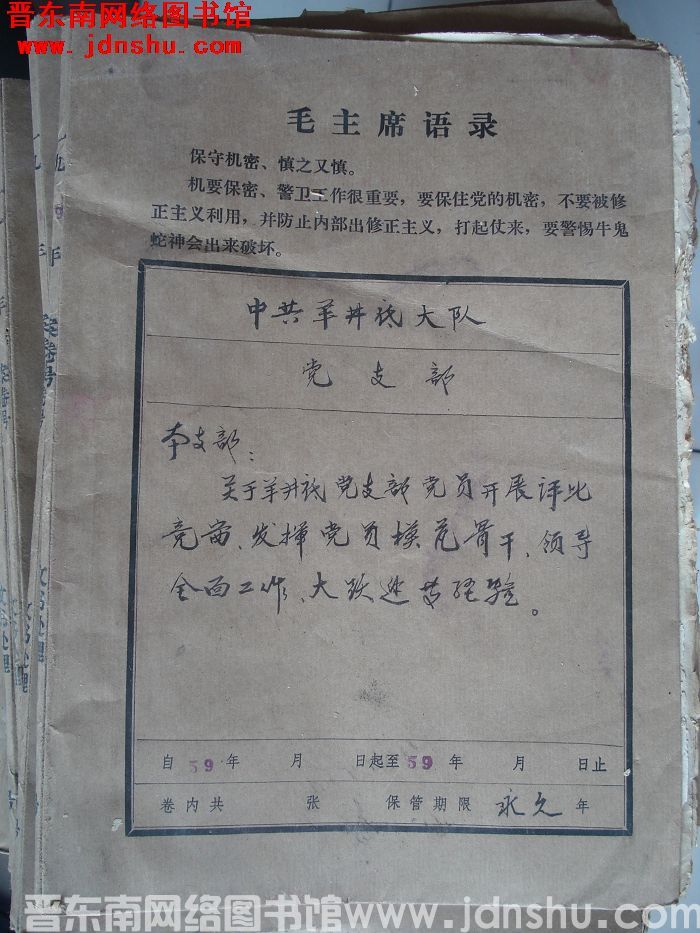 晋东南网络图书馆
www.jdnshu.com
毛主席语录
保守机密、慎之又慎。
机要保密、警卫工作很重要，要保住党的机密，不要被修
正主义利用，并防止内部出修正主义，打起仗来，要警惕牛鬼
蛇神会出来破坏。
中共羊井底大队
党支部
本支部：
关于羊井底党支部党员开展评比
竞赛、发挥党员模范骨干、领导
全面工作、大跃进的经验。
自59年 月 日起至59年 月 日止
卷内共 张 保管期限 永久 年
案卷号
文书处理
晋东南网络图书馆www.jdnshu.com